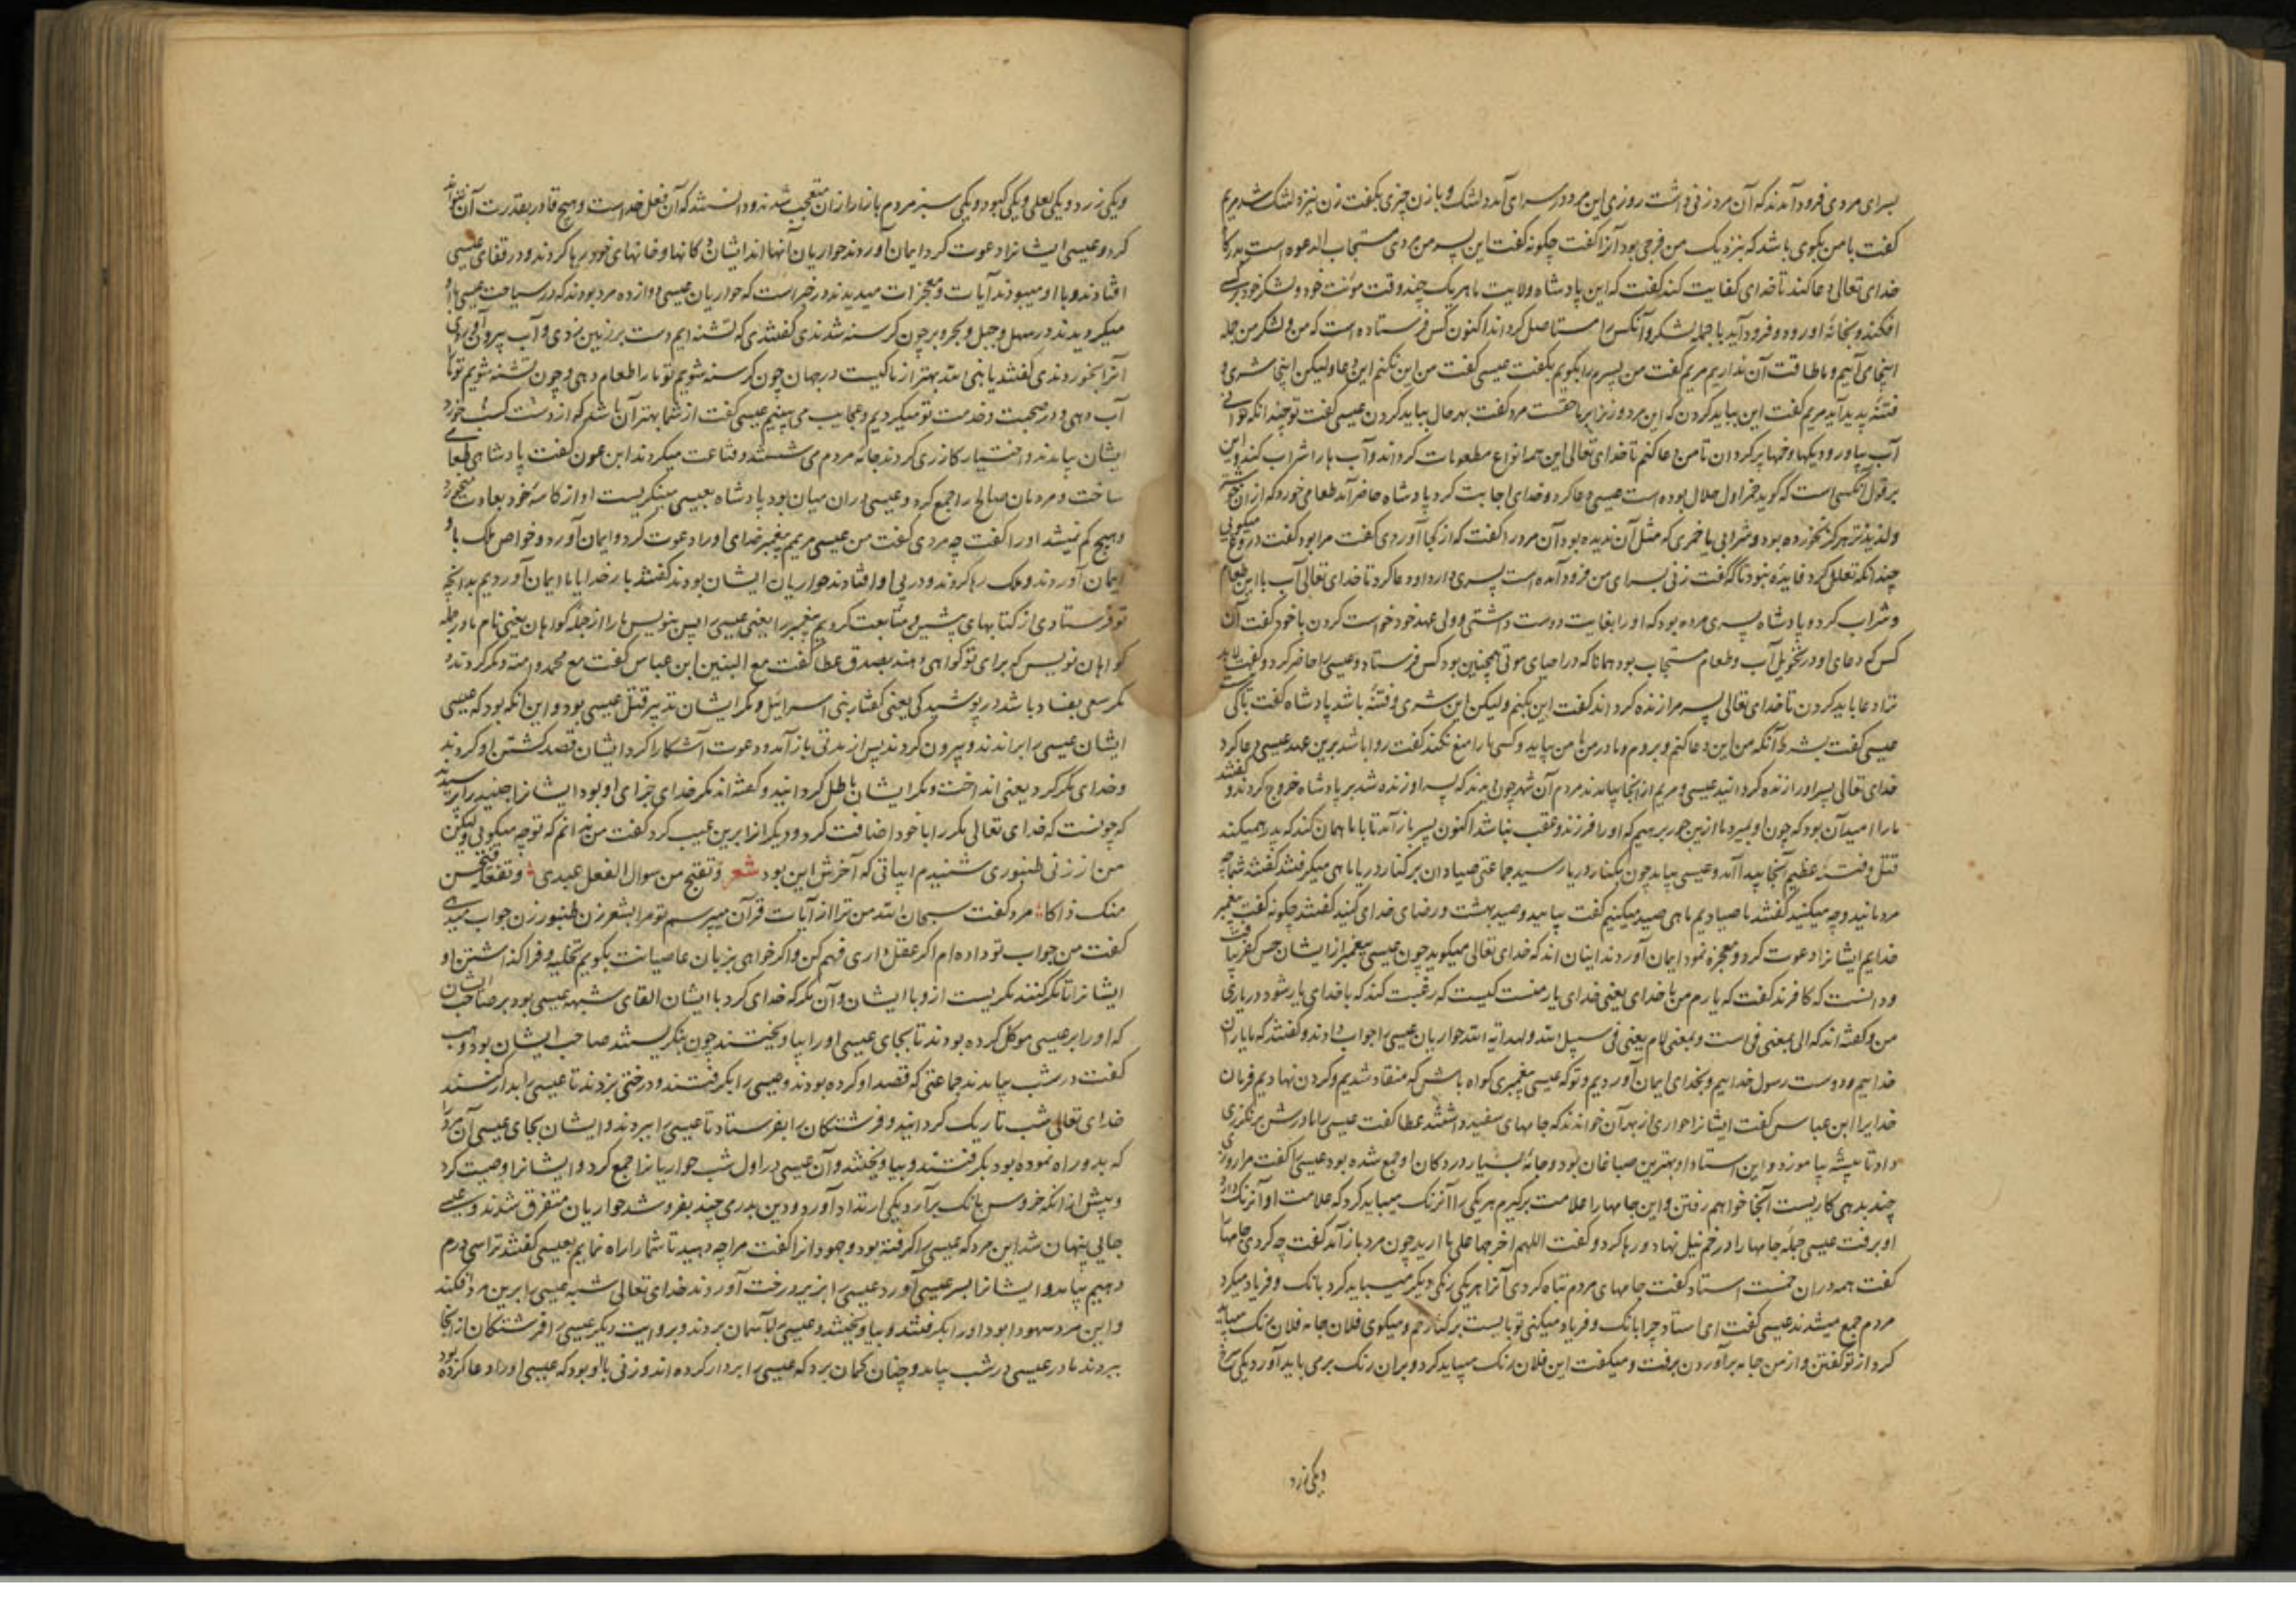 بسرای مردی فرود آمدند که آن مرد زنی داشت روزی این مرد در سرای آمد دلتنک و با زن چیزی بکفت زن نیز دلتنک شد مریم
کفت با من بکوی باشد که بنزدیک من فرجی بود آنرا کفت چکونه کفت این پسر من مردی مستجاب الدعوه است
خدای تعالی دعا کند تا خدای کفایت کند کفت که این پادشاه ولایت ما هر یک چند وقت مؤنت خود و لشکر خود بر کسی
افکند و بخانه او رود و فرود آید با جمله لشکر و آنکس را مستاصل کرداند اکنون کس فرستاده است که من و لشکر من جمله
اینجا می آییم و ما طاقت آن نداریم مریم کفت من پسرم را بکویم بکفت عیسی کفت من این نکنم این دعا ولیکن اینجا شری و
فتنه پدید آید مریم کفت این بباید کردن که این مرد و زن را بر ما حقست مرد کفت بهر حال بباید کردن عیسی کفت تو چندانکه خوانی
آب بیاور و دیکها و خمها پر کردان تا من دعا کنم تا خدای تعالی این همه انواع مطعومات کرداند و آب ها را شراب کند و این
بر قول آنکس است که کوید خمر اول حلال بوده است عیسی دعا کرد و خدای اجابت کرد پادشاه حاضر آمد طعامی خورد که از آن خوشتر
ولذیذتر هرکز نخورده بود و شرابی یا خمری که مثل آن ندیده بود آن مرد را کفت که از کجا آوردی کفت مرا بود کفت دروغ میکویی
چندانکه تعلل کرد فایده نبود تا کفت زنی بسرای من فرود آمده است پسری دارد او دعا کرد تا خدای تعالی آب با این طعام
و شراب کرد و پادشاه پسری مرده بود که او را بغایت دوست داشتی و ولی عهد خود خواست کردن با خود کفت آن
کس که دعای او در تحویل آب و طعام مستجاب بود همانا که در احیای موتی همچنین بود کس فرستاد و عیسی را حاضر کرد و کفت
ترا دعا باید کردن تا خدای تعالی پسر مرا زنده کرداند کفت این بکنم ولیکن این شری و فتنه باشد پادشاه کفت باکی
عیسی کفت بشرط آنکه من این دعا کنم و بروم و مادر من با من بیاید و کسی ما را منع نکند کفت روا باشد برین عهد عیسی دعا کرد
خدای تعالی پسر او را زنده کردانید عیسی و مریم از آنجا بیامدند مردم آن شهر چون دیدند که پسر او زنده شد بر پادشاه خروج کردند و کفتند
ما را امید آن بود که چون او بمیرد ما ازین جور برهیم که او را فرزند و عقب نباشد اکنون پسر باز آمد تا با ما همان کند که پدر همیکند
قتل و فتنه عظیم آنجا پیدا آمد و عیسی بیامد چون بکنار دریا رسید جماعتی صیادان بر کنار دریا ماهی میکرفتند کفت شما چه
مردمانید و چه میکنید کفتند ما صیادیم ماهی صید میکنیم کفت بیایید و صید بهشت و رضای خدای کنید کفتند چکونه کفت پیغمبر
خدایم ایشانرا دعوت کرد و معجزه نمود ایمان آوردند اینان اند که خدای تعالی میکوید چون عیسی پیغمبر از ایشان حس کفر یافت
و دانست که کافرند کفت که یارم من با خدای یعنی خدای یار منست کیست که رغبت کند که با خدای یار شود در یاری
من و کفته اند که الی بمعنی فی است و بمعنی لام یعنی فی سبیل الله و لهدایه الله حواریان عیسی را جواب دادند و کفتند که ما یاران
خداییم و دوست رسول خداییم و بخدای ایمان آوردیم و تو که عیسی پیغمبری کواه باش که منقاد شدیم و کردن نهادیم فرمان
خدایرا ابن عباس کفت ایشانرا حواری از بهر آن خواندند که جامهای سفید داشتند عطا کفت عیسی را مادرش برنکرزی
داد تا پیشه بیاموزد و این استاد او بهترین صباغان بود و جامه بسیار در دکان او جمع شده بود عیسی را کفت مرا روزی
چند بدهی کاریست آنجا خواهم رفتن و این جامها را علامت برکیرم هر یکی را آنرنک میباید کرد که علامت او آنرنک دارد
او برفت عیسی جمله جامها را در خم نیل نهاد و رها کرد و کفت اللهم اخرجها علی ما ارید چون مرد باز آمد کفت چه کردی جامها
کفت همه در آن خمست استاد کفت جامهای مردم تباه کردی آنرا هر یکی رنکی دیکر میباید کرد بانک و فریاد میکرد
مردم جمع میشدند عیسی کفت ای استاد چرا بانک و فریاد میکنی تو بایست بر کنار خم و میکوی فلان جامه فلان رنک میباید
کرد از تو کفتن و از من جامه برآوردن برفت و میکفت این فلان رنک میباید کرد و بران رنک برمی باید آورد یکی سرخ
ویکی زرد
ویکی زرد ویکی لعلی ویکی کبود ویکی سبز مردم بازار از آن متعجب شدند و دانستند که آن فعل خداست و هیچ قادر بقدرت آن نتواند
کرد و عیسی ایشانرا دعوت کرد ایمان آوردند حواریان آنها اند ایشان دکانها و خانهای خود رها کردند و در قفای عیسی
افتادند و با او میبودند آیات و معجزات میدیدند در خبر است که حواریان عیسی دوازده مرد بودند که در سیاحت عیسی با او
میکردیدند در سهل و جبل و بحر و بر چون کرسنه شدندی کفتندی که تشنه ایم دست بر زمین زدی و آب بیرون آوردی
آنرا بخوردندی کفتند یا نبی الله بهتر از ما کیست در جهان چون کرسنه شویم تو ما را طعام دهی و چون تشنه شویم تو ما را
آب دهی و در صحبت و خدمت تو میکردیم و عجایب می بینیم عیسی کفت از شما بهتر آن باشد که از دست کسب خورد
ایشان بیامدند و اختیار کازری کردند جامه مردم می شستند و قناعت میکردند ابن عون کفت پادشاهی طعامی
ساخت و مردمان صالح را جمع کرد و عیسی در آن میان بود پادشاه بعیسی مینکریست او از کاسه خود بعادت میخورد
وهیچ کم نمیشد او را کفت چه مردی کفت من عیسی مریمم پیغمبر خدای او را دعوت کرد و ایمان آورد و خواص ملک با او
ایمان آوردند و ملک رها کردند و در پی او افتادند حواریان ایشان بودند کفتند بار خدایا ما ایمان آوردیم بدانچه
تو فرستادی از کتابهای پیشین و متابعت کردیم پیغمبر را یعنی عیسی را پس بنویس ما را از جمله کواهان یعنی نام ما در جمله
کواهان نویس که برای تو کواهی دهند بصدق عطا کفت مع النبیین ابن عباس کفت مع محمد و امته و مکر کردند و
مکر سعی بفساد باشد در پوشیدکی یعنی کفار بنی اسرائیل و مکر ایشان تدبیر قتل عیسی بود و این آنکه بود که عیسی
ایشان عیسی را براندند و بیرون کردند پس از مدتی باز آمد و دعوت آشکارا کرد ایشان قصد کشتن او کردند
و خدای مکر کرد یعنی انداخت و مکر ایشان باطل کردانید و کفته اند مکر خدای جزای او بود ایشانرا جنید را پرسیدند
که چونست که خدای تعالی مکر را با خود اضافت کرد و دیکرانرا برین عیب کرد کفت من ندانم که تو چه میکویی ولیکن
من از زنی طنبوری شنیدم ابیاتی که آخرش این بود شعر وتقبح من سوال الفعل عندی وتفعله فیحسن
منک ذاکا مرد کفت سبحان الله من ترا از آیات قرآن میپرسم تو مرا بشعر زن طنبور زن جواب میدهی
کفت من جواب تو داده ام اکر عقل داری فهم کن و اکر خواهی بزبان عامیانت بکویم تخلیه و فرا کذاشتن او
ایشانرا تا مکر کنند مکریست از و با ایشان و آن مکر که خدای کرد با ایشان القای شبهه عیسی بود بر صاحب ایشان
که او را بر عیسی موکل کرده بودند تا بجای عیسی او را بیاویختند چون بنکریستند صاحب ایشان بود وهب
کفت در شب بیامدند جماعتی که قصد او کرده بودند و عیسی را بکرفتند و درختی بزدند تا عیسی را بدار کنند
خدای تعالی شب تاریک کردانید و فرشتکان را بفرستاد تا عیسی را ببردند و ایشان بجای عیسی آن مرد را
که بدو راه نموده بود بکرفتند و بیاویختند و آن عیسی در اول شب حواریانرا جمع کرد و ایشانرا وصیت کرد
و پیش از آنکه خروس بانک برآرد یکی ارتداد آورد و دین بدرمی چند بفروشد حواریان متفرق شدند و عیسی
جایی پنهان شد این مرد که عیسی را کرفته بود و جهودانرا کفت مرا چه دهید تا شما را راه نمایم بعیسی کفتند ترا سی درم
دهیم بیامد و ایشانرا بسر عیسی آورد عیسی را بزیر درخت آوردند خدای تعالی شبه عیسی را برین مرد افکند
و این مرد یهودا بود او را بکرفتند و بیاویختند و عیسی را بآسمان بردند و بروایت دیکر عیسی را فرشتکان از آنجا
ببردند مادر عیسی در شب بیامد و چنان کمان برد که عیسی را بردار کرده اند و زنی با او بود که عیسی او را دعا کرده بود